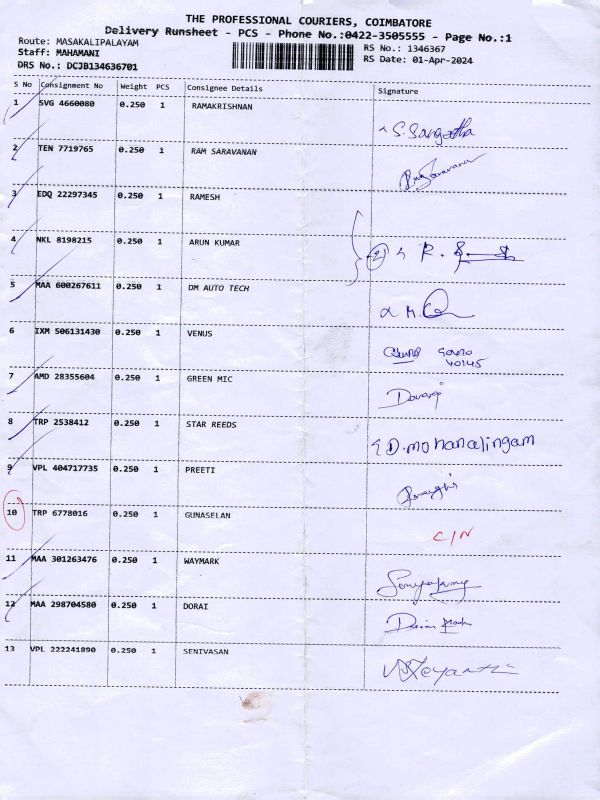 THE PROFESSIONAL COURIERS, COIMBATORE
Delivery Runsheet - PCS - Phone No.:0422-3505555 - Page No.:1
Route: MASAKALIPALAYAM
Staff: MAHAMANI
DRS No.: DCJB134636701
RS No.: 1346367
RS Date: 01-Apr-2024
S No Consignment No Weight PCS Consignee Details Signature
1 SVG 4660080 0.250 1 RAMAKRISHNAN
S. Sangeetha
2 TEN 7719765 0.250 1 RAM SARAVANAN
3 EDQ 22297345 0.250 1 RAMESH
4 NKL 8198215 0.250 1 ARUN KUMAR
2 R.
5 MAA 600267611 0.250 1 DM AUTO TECH
M.
6 IXM 506131430 0.250 1 VENUS
7 AMD 28355604 0.250 1 GREEN MIC
8 TRP 2538412 0.250 1 STAR REEDS
D. mohanalingam
9 VPL 404717735 0.250 1 PREETI
10 TRP 6778016 0.250 1 GUNASELAN
C/N
11 MAA 301263476 0.250 1 WAYMARK
12 MAA 298704580 0.250 1 DORAI
13 VPL 222241890 0.250 1 SENIVASAN